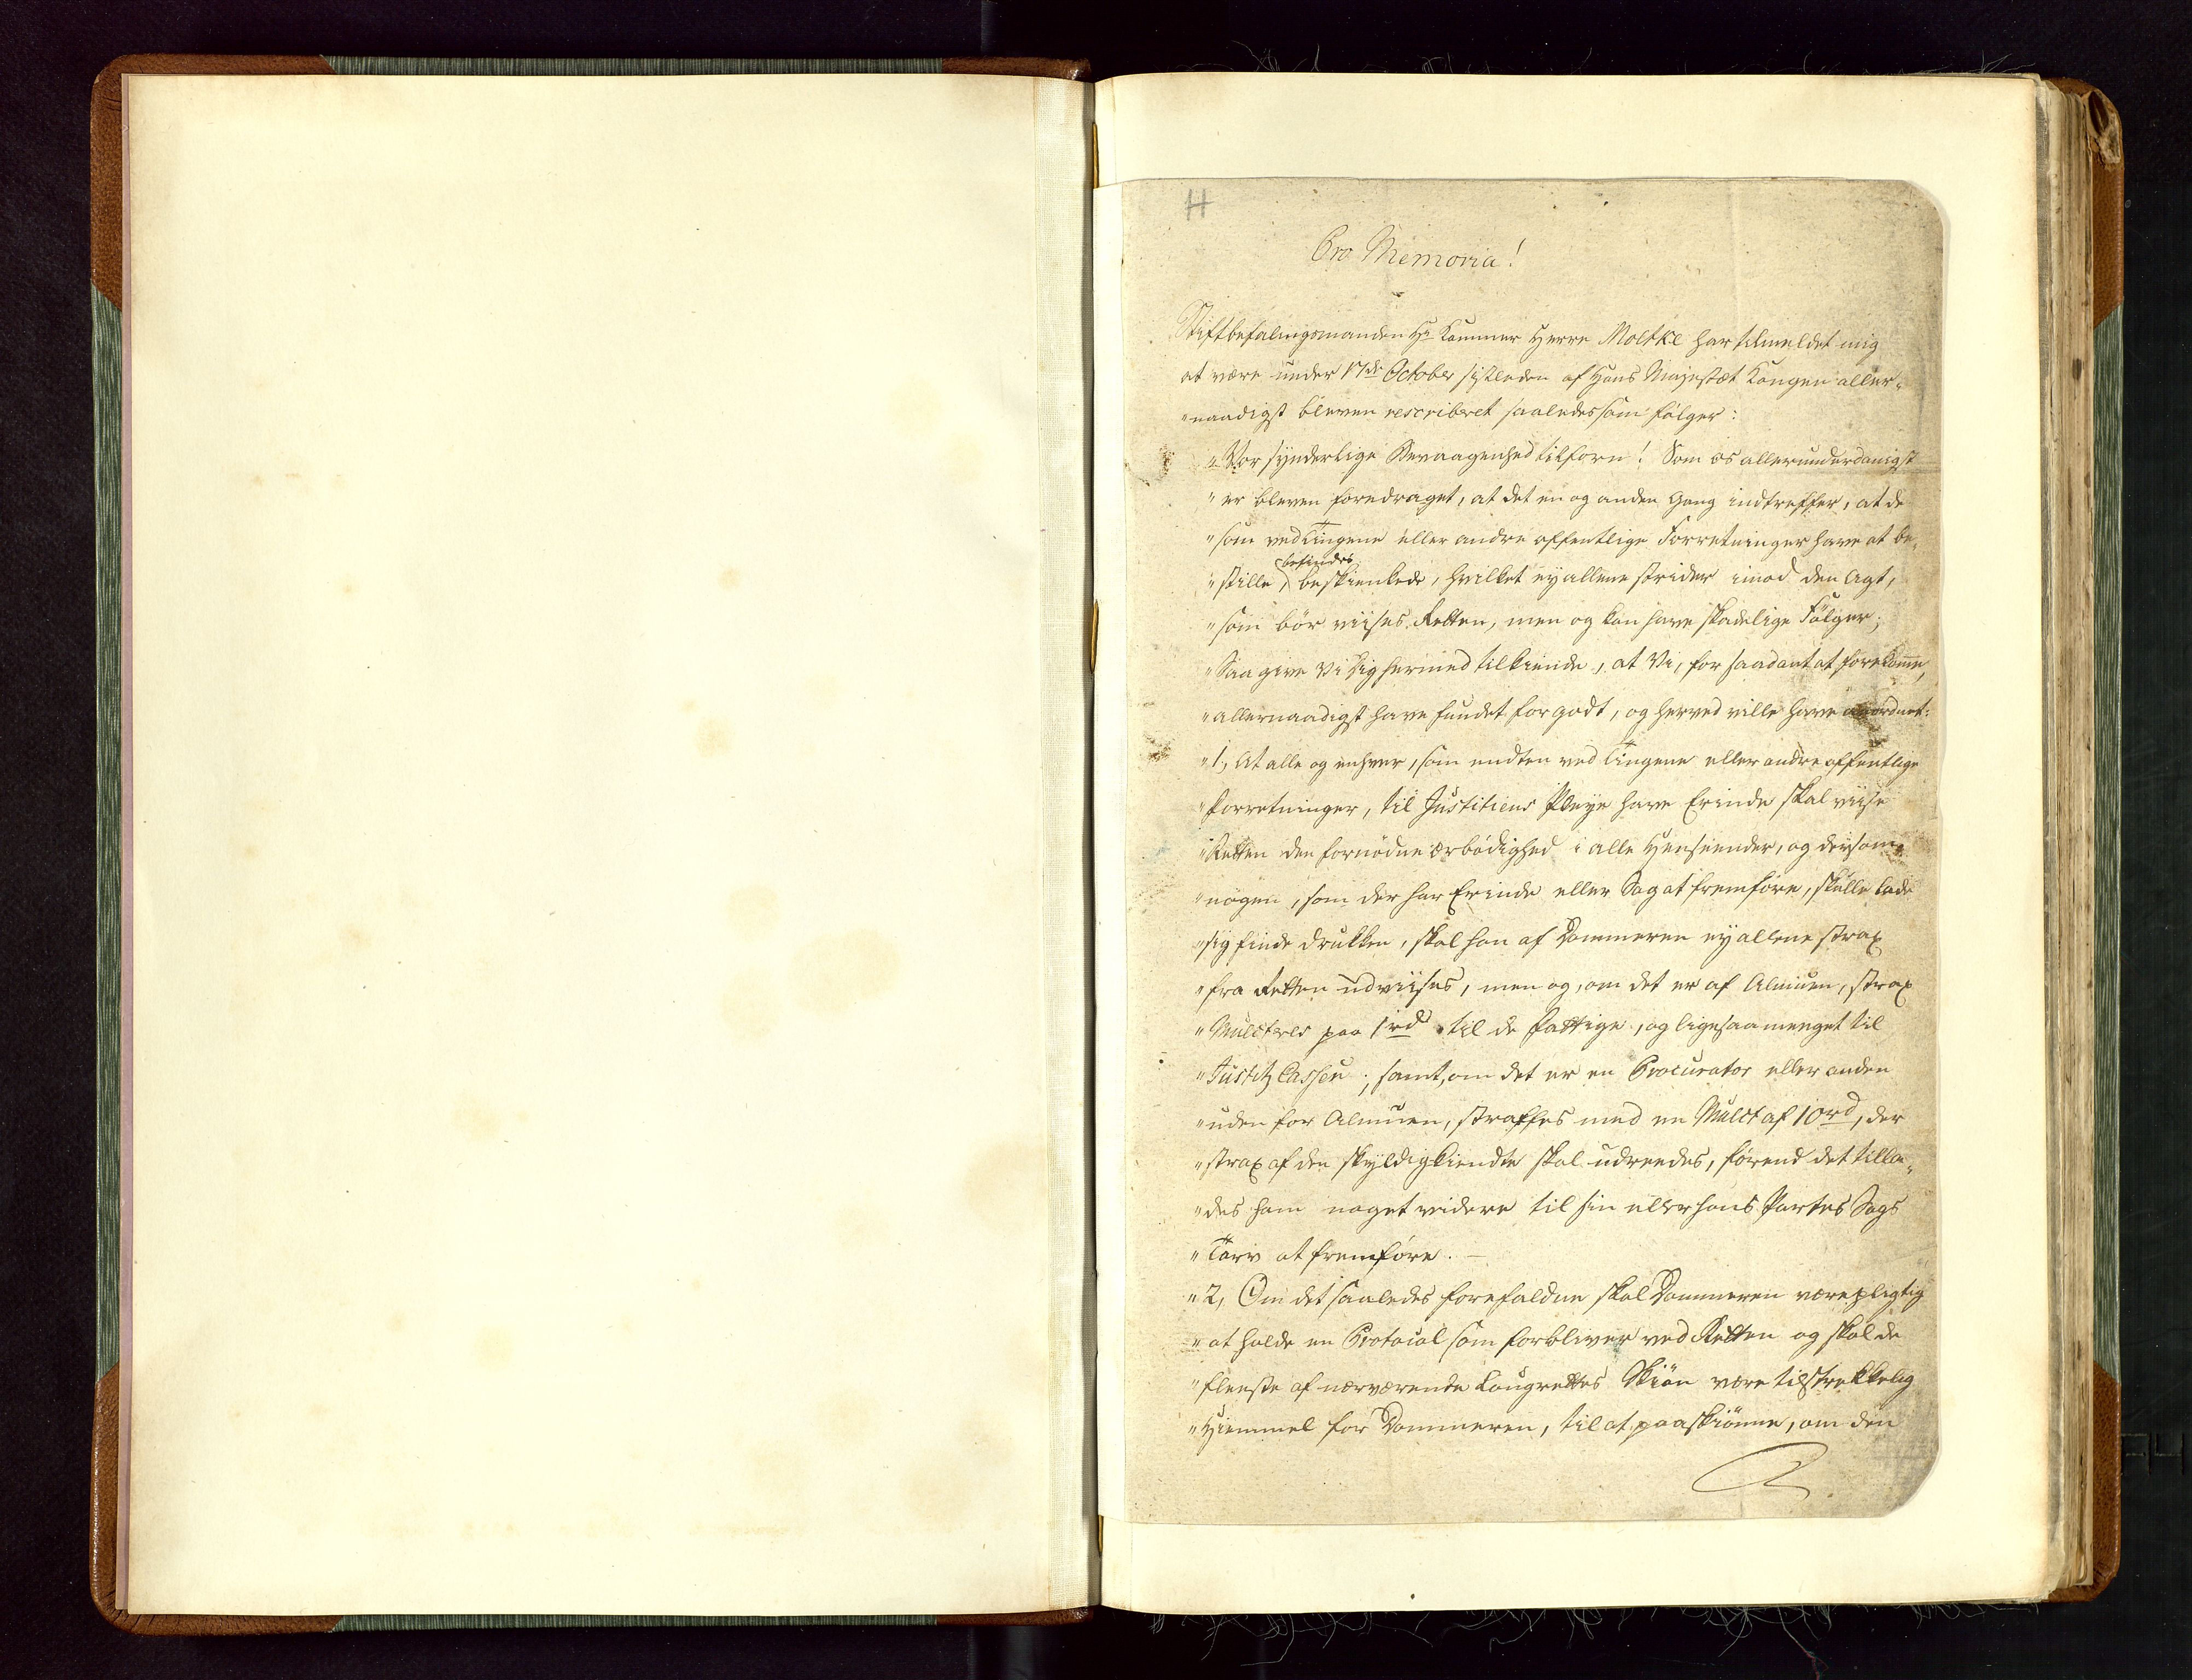 H
Pro Memoria!
Stiftbefalingsmanden Hr Kammer Herre Moltke har tilmeldet mig
at være under 17de October sistleden af Hans Majestæt Kongen aller-
"naadigst bleven rescriberet saaledes som fölger:
"Vor synderlige Bevaagenhed tilforn! Som os allerunderdanigst
"er bleven foredraget, at det en og anden Gang indtreffer, at de
"som ved Tingene eller andre offentlige Forretninger have at be-
befindes
"stille, beskienkede, hvilket ey allene strider imod den Agt,
"som bör viises Retten, men og kan have skadelige Fölger;
"Saa give Vi dig hermed tilkiende, at Vi, for saadant at forekomme,
"allernaadigst have fundet for godt, og herved ville have anordnet:
"1, At alle og enhver, som endten ved Tingene eller andre offentlige
"Forretninger, til Justitiens Pleye have Erinde skal viise
"Retten den fornödne ærbödighed i alle Henseender, og dersom
"nogen, som der har Erinde eller Sag at fremföre, skulle lade
"sig finde drukken, skal han af Dommeren ey allene strax
"fra Retten udviises, men og, om det er af Almuen, strax
"Mulcteres paa 1rd til de fattige, og ligesaa meget til
"Justitz Cassen; samt, om det er en Procurator eller anden
"uden for Almuen, straffes med en Mulct af 10rd, der
"strax af den skyldigkiendte skal udreedes, förend det tilla-
"des ham noget videre til sin eller hans Partes Sags
"Tarv at fremföre. —
"2, Om det saaledes forefaldne skal Dommeren være pligtig
"at holde en Protocol som forbliver ved Retten og skal de
"fleeste af nærværende Laugrettes Skiön være tilstrekkelig
"Hiemmel for Dommeren, til at paaskiönne, om den